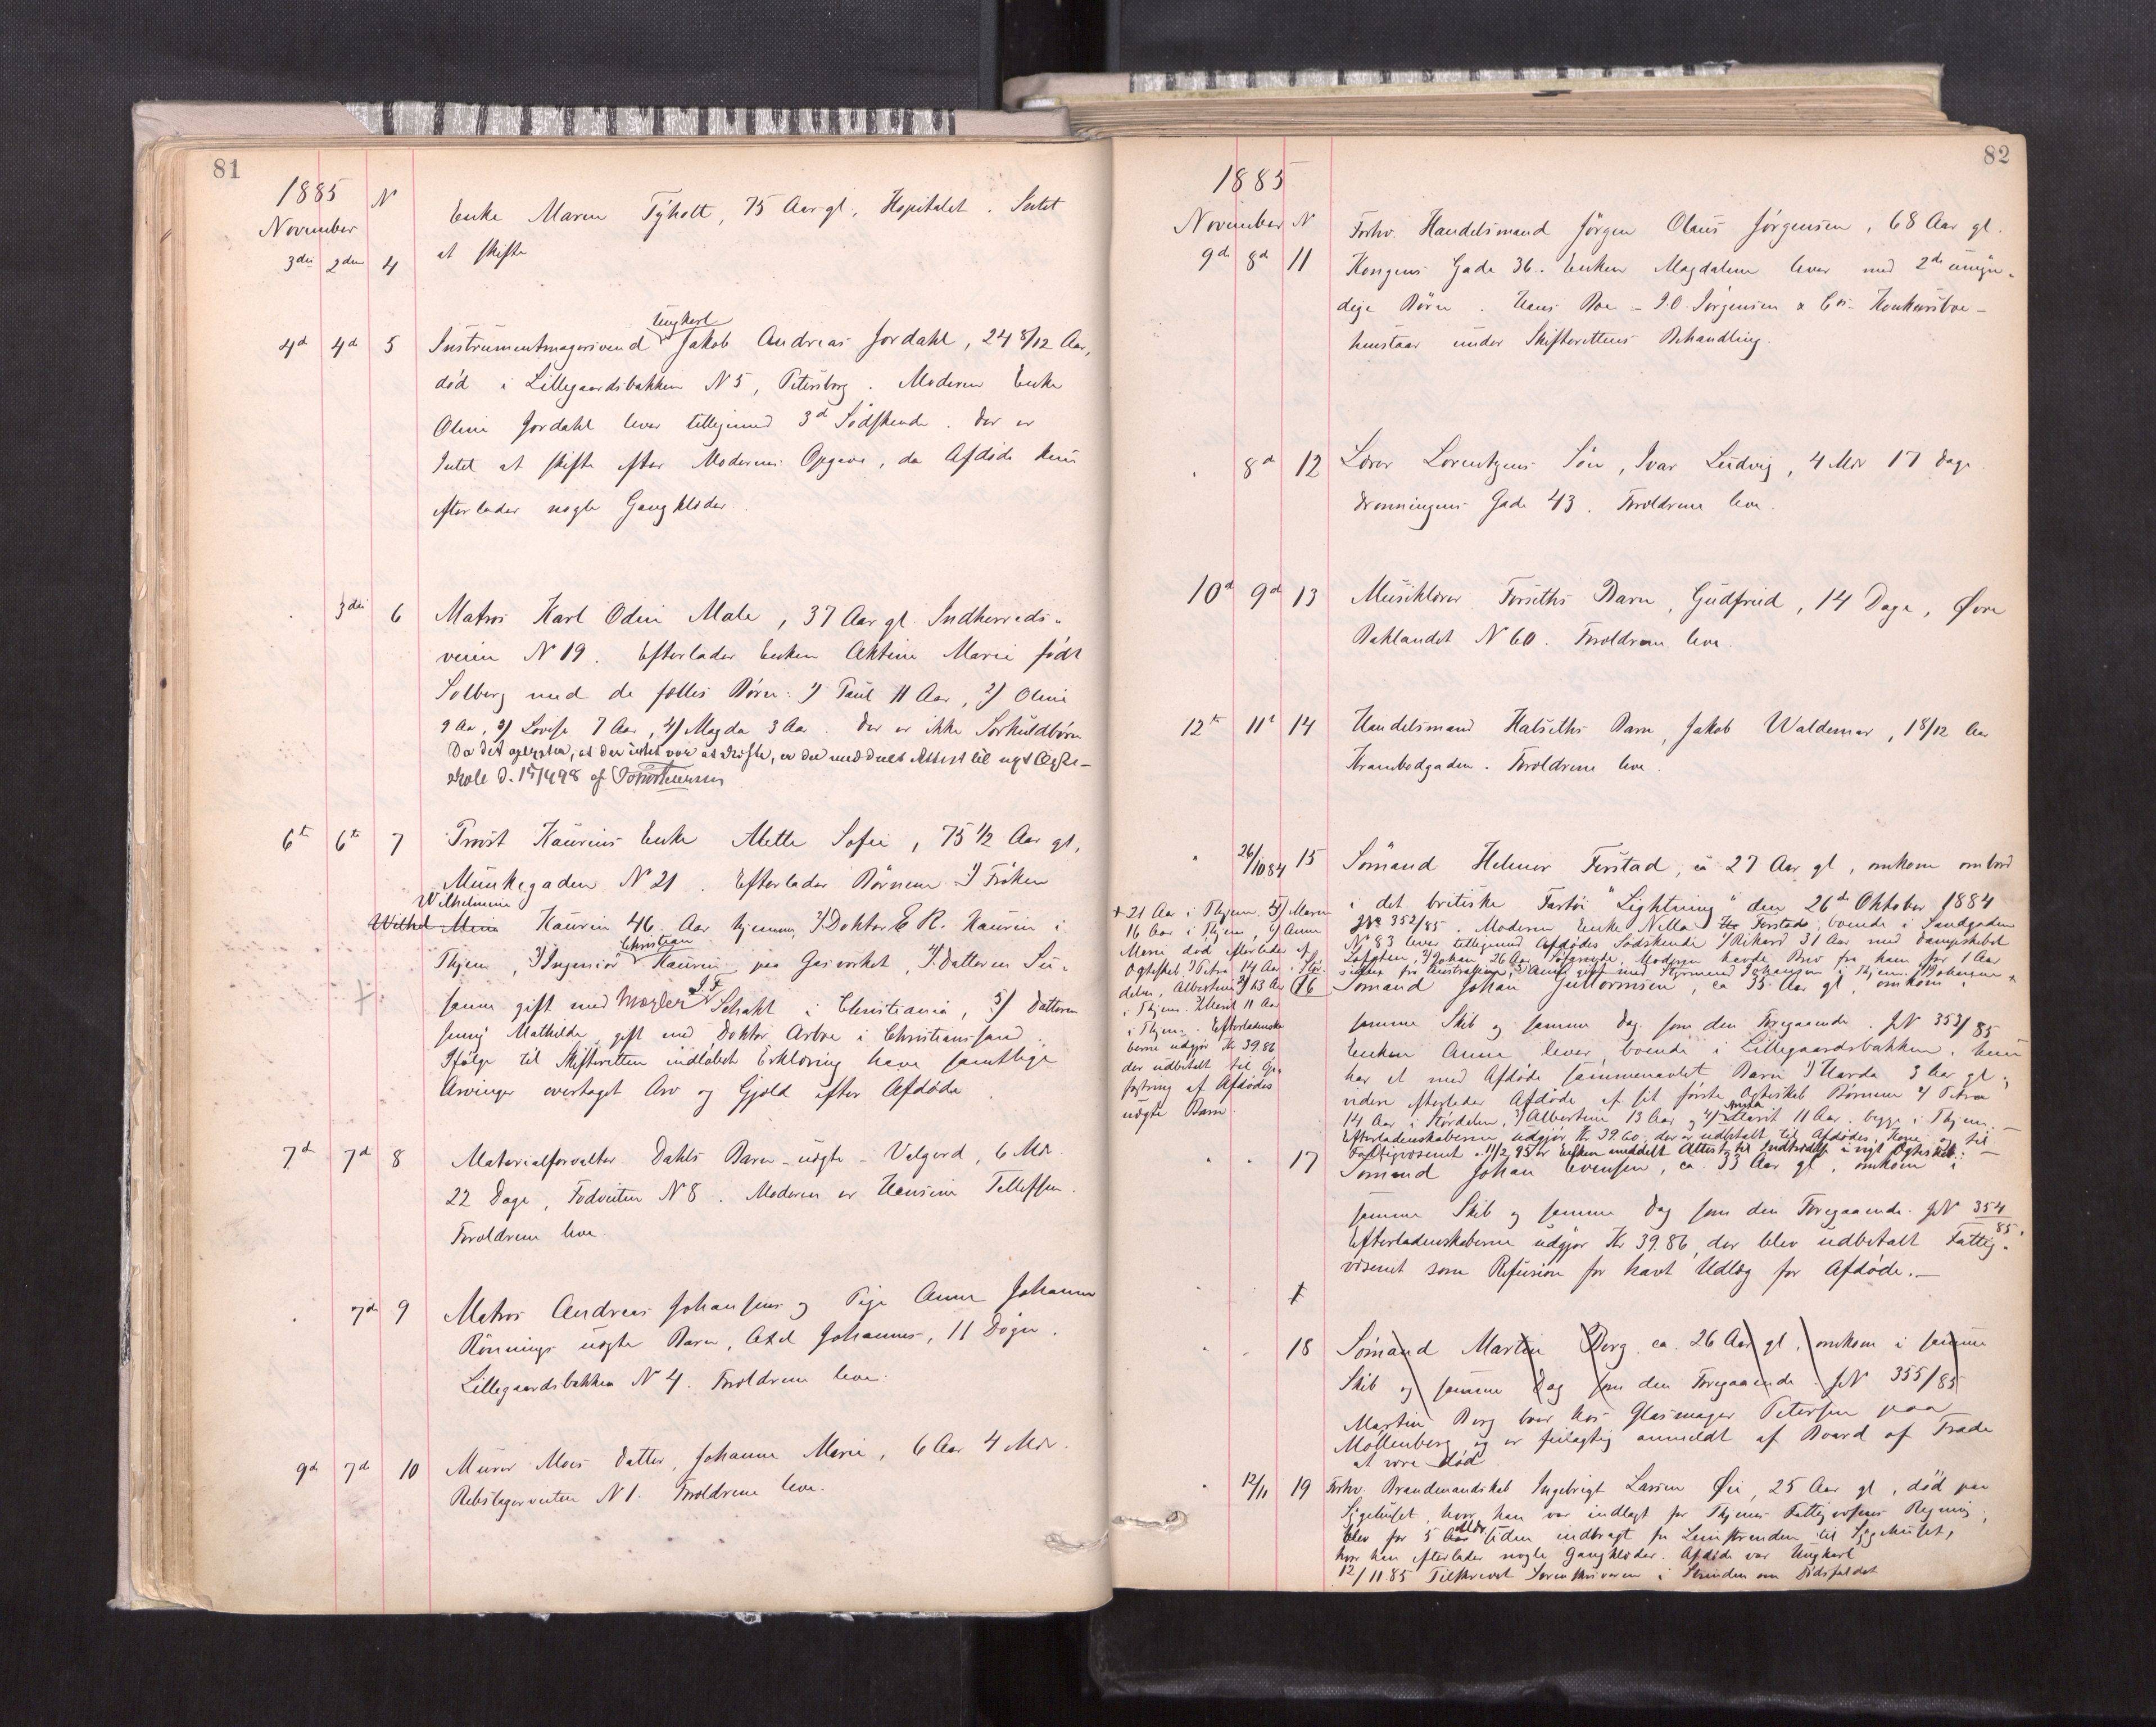 81
1885 N
November
3die 2den 4 Enke Maren Tyholt, 75 Aar gl., Hospitalet. Intet
at skifte
Ungkarl
4d 4d 5 Instrumentmagersvend Jakob Andreas Jordahl, 24 8/12 Aar,
død i Lillegaardsbakken N 5, Petersborg. Moderen Enke
Oline Jordahl lever tilligemed 3d Sødskende. Der er
Intet at skifte efter Moderens Opgave, da Afdøde kun
efterlader nogle Gangklæder.
3die 6 Matros Karl Odin Male, 37 Aar gl. Indherreds-
veien N 19. Efterlader Enken Aktine Marie født
Solberg med de fælles Børn: 1) Paul 11 Aar, 2) Oline
9 Aar, 3) Lovise 7 Aar, 4) Magda 3 Aar. Der er ikke Særkuldbørn
Da det oplystes, at der intet var at skifte, er der meddelt Attest til nyt Ægte-
skab d.
6te 6te 7 Provst Kaurins Enke Mette Sofie, 75 1/2 Aar gl,
Munkegaden N 21. Efterlader Børnene 1) Frøken
Wilhelmine
Wilhel Mina Kaurin 46 Aar hjemme, 2) Doktor E R. Kaurin i
Christian
Thjem, 3) Ingeniør Kaurin paa Gasværket, 4) Datteren Su-
J. F
sanna gift med Mægler Schakt i Christiania, 5) Datteren
Jenny Mathilde, gift med Doktor Arboe i Christianssand
Ifølge til Skifteretten indløbet Erklæring have samtlige
Arvinger overtaget Arv og Gjæld efter Afdøde
7d 7d 8 Materialforvalter Dahls Barn - uægte - Valgerd, 6 Mdr
22 Dage, Fodveiten N 8. Moderen er Hansine Tellefsen.
Forældrene leve
7de 9 Matros Andreas Johansens og Pige Anne Johanna
Rønnings uægte Barn, Axel Johannes, 11 Døgn.
Lillegaardsbakken N 4. Forældrene leve.
9de 7d 10 Murer Moes Datter, Johanne Marie, 6 Aar 4 Mdr.
Rebslagerveiten N 1. Forældrene leve.
82
1885
November N
9de 8d 11 Forhv. Handelsmand Jørgen Olaus Jørgensen, 68 Aar gl.
Kongens Gade 36. Enken Magdalene lever med 2de umyn-
dige Børn. Hans Boe - J.O. Jørgensen & Co's Konkursboe -
henstaar under Skifterettens Behandling.
8d 12 Lærer Lorentzens Søn, Ivar Ludvig, 4 Mdr 17 Dage
Dronningens Gade 43. Forældrene leve.
10d 9d 13 Musiklærer Forseths Barn, Gudfreid, 14 Dage, Øvre
Baklandet N 60. Forældrene leve.
12te 11te 14 Handelsmand Halseths Barn, Jakob Waldemar, 1 8/12 Aar
Krambodgaden. Forældrene leve.
26/10 84 15 Sømand Helmer Ferstad, ca 27 Aar gl, omkom ombord
i det britiske Fartøi "Lightning" den 26de Oktober 1884
JNo 352/85. Moderen Enke Nella Ferstad, boende i Sandgaden
No 83 lever tilligemed Afdødes Sødskende 1) Rikard 31 Aar med Dampskibet
Lofoten, 2) Johan 26 Aar Søfarende, Moderen havde Brev fra ham for 1 Aar
siden fra Australien, 3) gift med Styrmand Johansen i Thjem,
+ 21 Aar i Thjem 5) Maren
16 Aar i Thjem, 6) Anna
Marie død efterlader af
Ægteskab 1) Petra 14 Aar i Stør-
delen, Albertine 2) 13 Aar
i Thjem Marit 11 Aar
i Thjem. Efterladenska-
berne udgjør Kr 39.86
der udbetalt til Op-
fostring af Afdødes
uægte Barn.
16 Sømand Johan Guttormsen, ca 35 Aar gl, omkom i
samme Skib og samme Dag som den Foregaaende. JN 353/85
Enken Anne lever, boende i Lillegaardsbakken. Hun
har et med Afdøde sammenavlet Barn 1) Harda 3 Aar gl;
videre efterlader Afdøde af sit første Ægteskab Børnene 2) Petra
14 Aar i Størdalen, 3) Albertine 13 Aar og 4) Marit 11 Aar, begge i Thjem. -
Efterladenskaberne udgjør Kr 39.60. der er udbetalt til Afdødes Kone og til
Fattigvæsenet. 11/2 95 er Enken meddelt Attest til Indtrædelse i nyt Ægteskab. -
17 Sømand Johan Evensen, ca. 33 Aar gl, omkom i
samme Skib og samme Dag som den Foregaaende. JN 354/85.
Efterladenskaberne udgjør Kr 39.86, der blev udbetalt Fattig-
væsenet som Refusion for havt Udlæg for Afdøde. -
18 Sømand Martin Berg. ca. 26 Aar gl, omkom i samme
Skib og samme Dag som den Foregaaende. JN 355/85
Martin Berg bor hos Glasmager Petersen paa
Møllenberg, og er feilagtig anmeldt af Board of Trade
at være død.
12/11 19 Forhv. Brandmandskab Ingebrigt Larsen Øie, 25 Aar gl, død paa
Sygehuset, hvor han var indlagt for Thjems Fattigvæsens Regning;
Mdr
blev for 5 Aar siden indbragt fra Leinstranden til Sygehuset,
hvor han efterlader nogle Gangklæder. Afdøde var Ungkarl
12/11 85 Tilskrevet Sorenskriveren i Strinden om Dødsfaldet